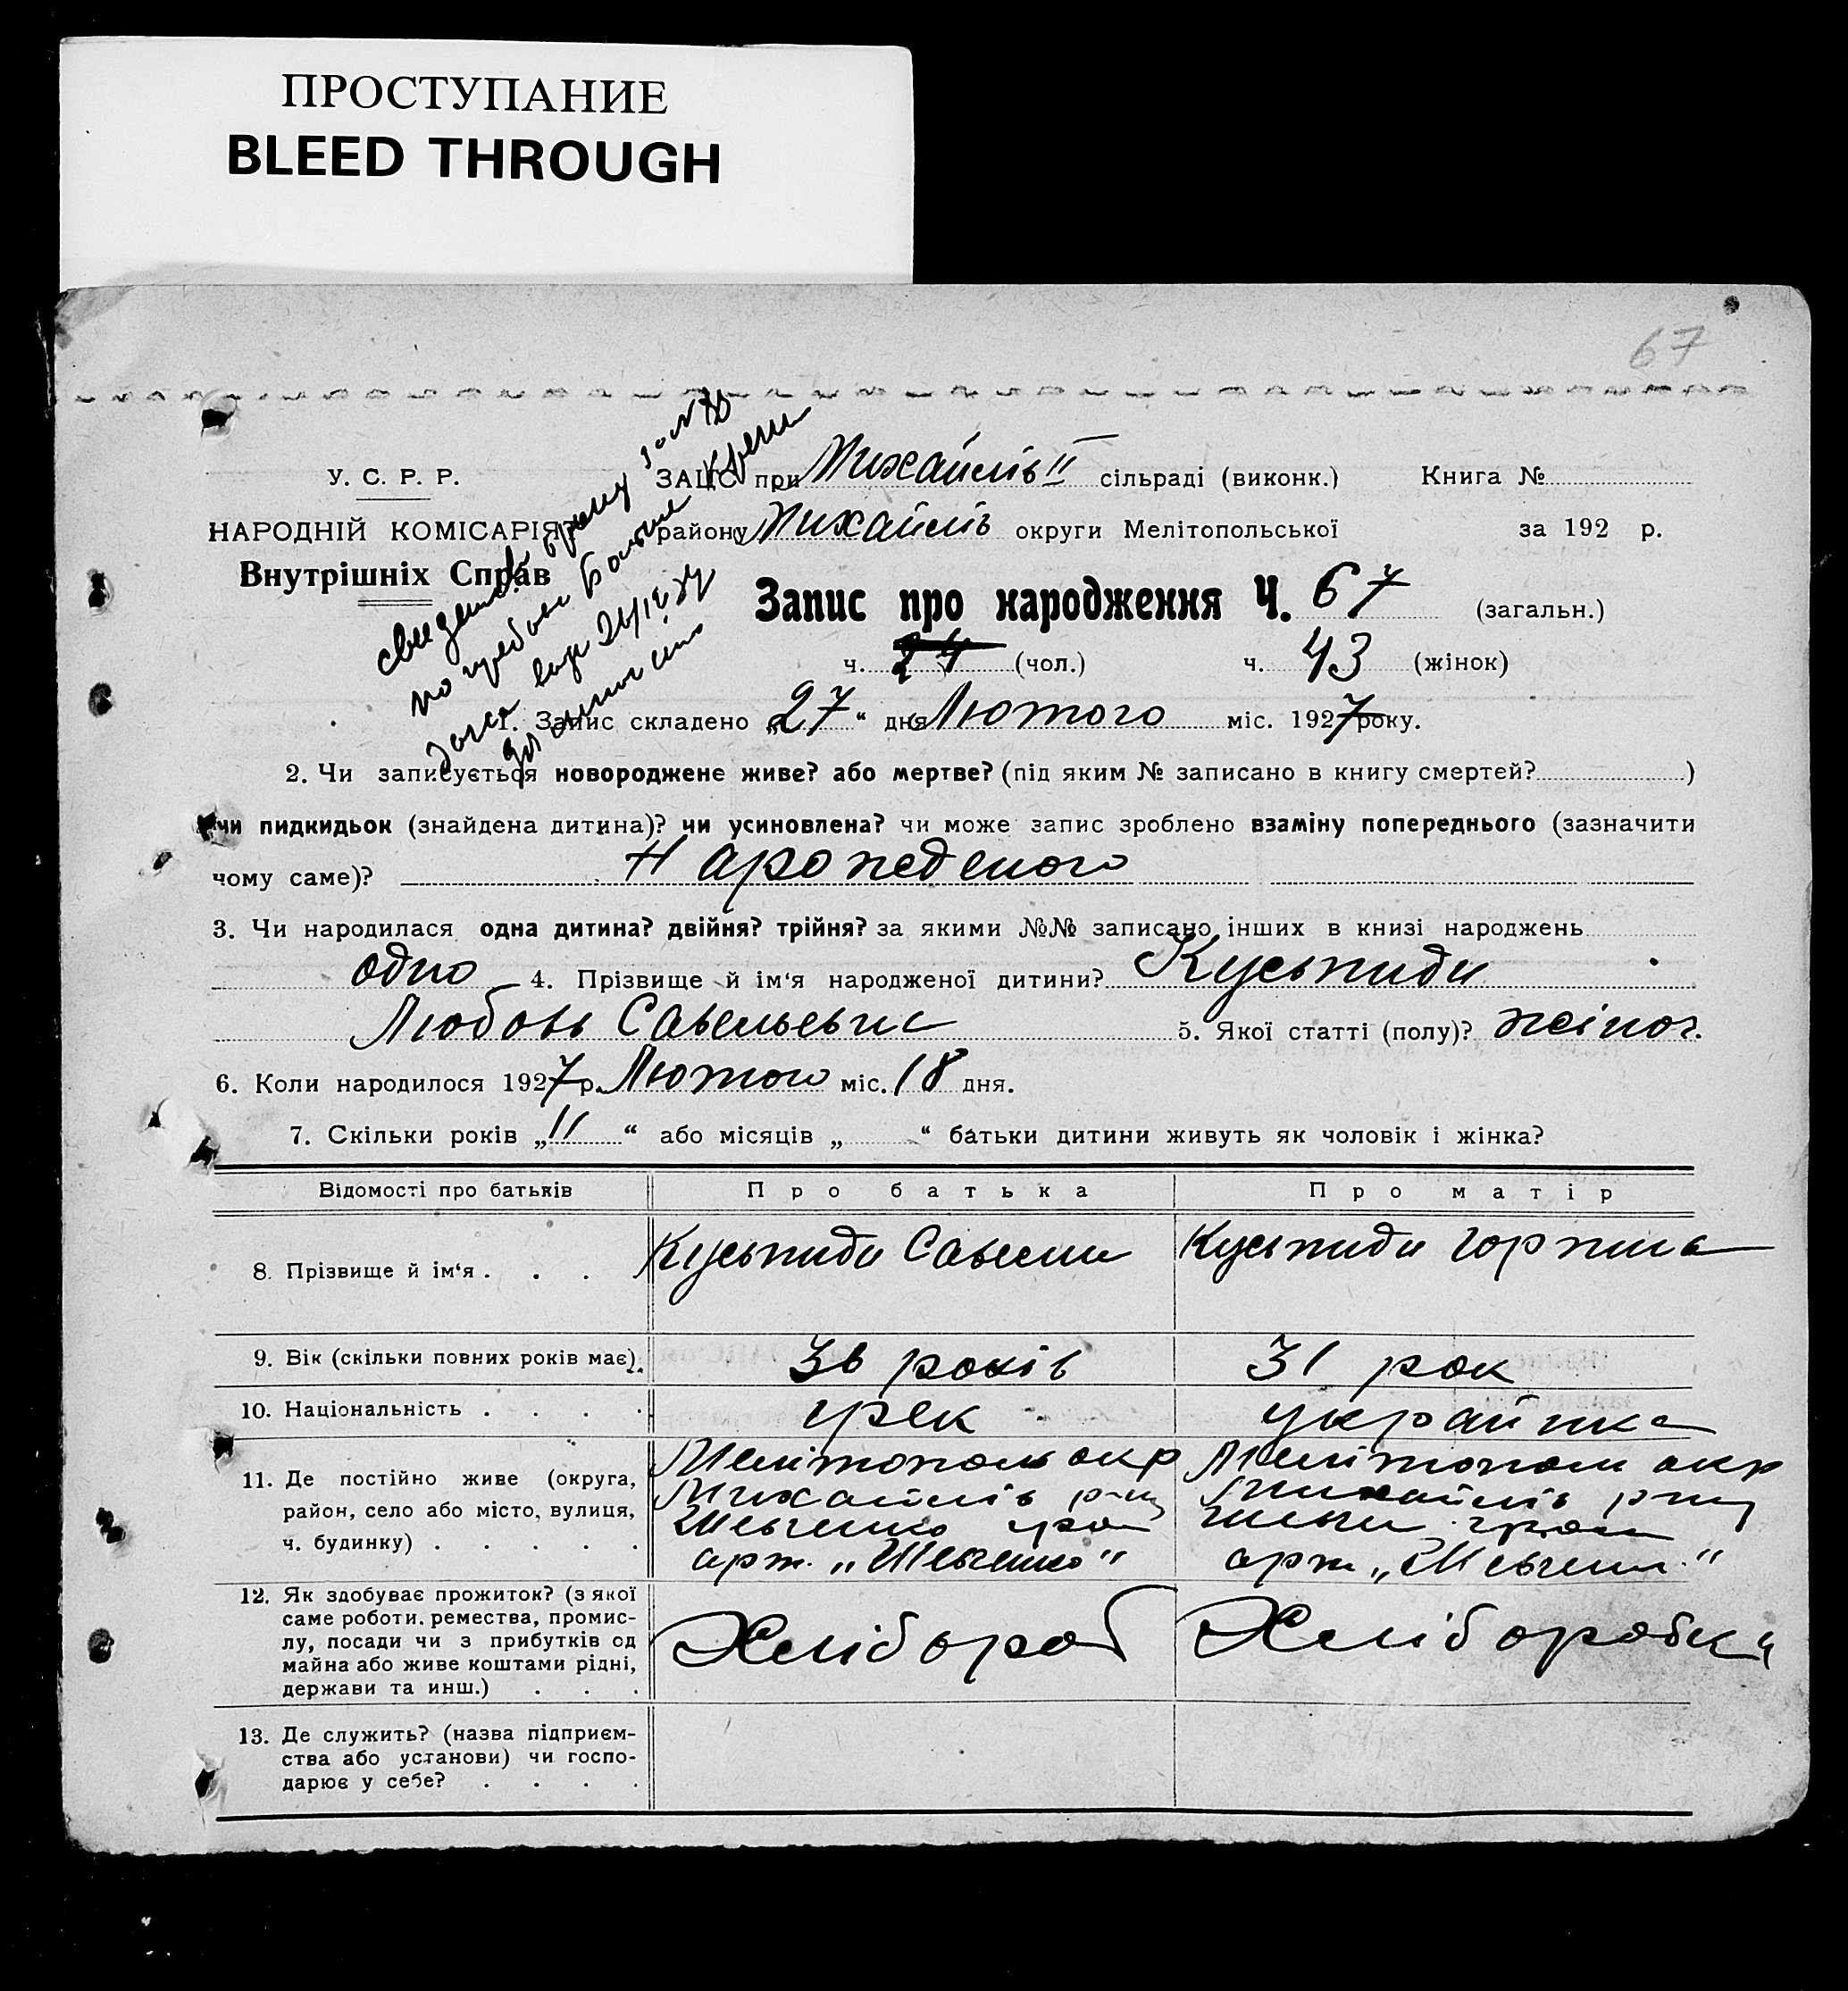 ПРОСТУПАНИЕ
BLEED THROUGH
67
У. С. Р. Р.
НАРОДНІЙ КОМІСАРІЯ
Внутрішніх Справ
ЗАЦС при Михайлів II сільраді (виконк.) Книга №
району Михайлів округи Мелітопольської за 192 р.
Запис про народження Ч. 67 (загальн.)
ч. 24 (чол.) ч. 43 (жінок)
1. Запис складено „27“ дня Лютого міс. 1927 року.
2. Чи записується новороджене живе? або мертве? (під яким № записано в книгу смертей? )
чи пидкидьок (знайдена дитина)? чи усиновлена? чи може запис зроблено взаміну попереднього (зазначити
чому саме)? Нарожеденого
3. Чи народилася одна дитина? двійня? трійня? за якими №№ записано інших в книзі народжень
одно 4. Прізвище й ім‘я народженої дитини?
Любовь Савельевна 5. Якої статті (полу)? жіноч.
6. Коли народилося 1927 р. Лютого міс. 18 дня.
7. Скільки років „11“ або місяців „ “ батьки дитини живуть як чоловік і жінка?
Відомості про батьків Про батька Про матір
8. Прізвище й ім‘я . . . .
9. Вік (скільки повних років має). 36 років 31 рок
10. Національність . . . . грек українка
11. Де постійно живе (округа, Мелітополь окр Мелітополь окр
район, село або місто, вулиця, Михайлів Михайлів
ч. будинку) . . . . . Шевченко
арт. „Шевченко“ арт. „Шевченк.“
12. Як здобуває прожиток? (з якої
саме роботи. ремества, промис-
лу, посади чи з прибутків од Хлібороб Хліборобка
майна або живе коштами рідні,
держави та инш.) . . .
13. Де служить? (назва підприєм-
ства або установи) чи госпо-
дарює у себе? . . . .